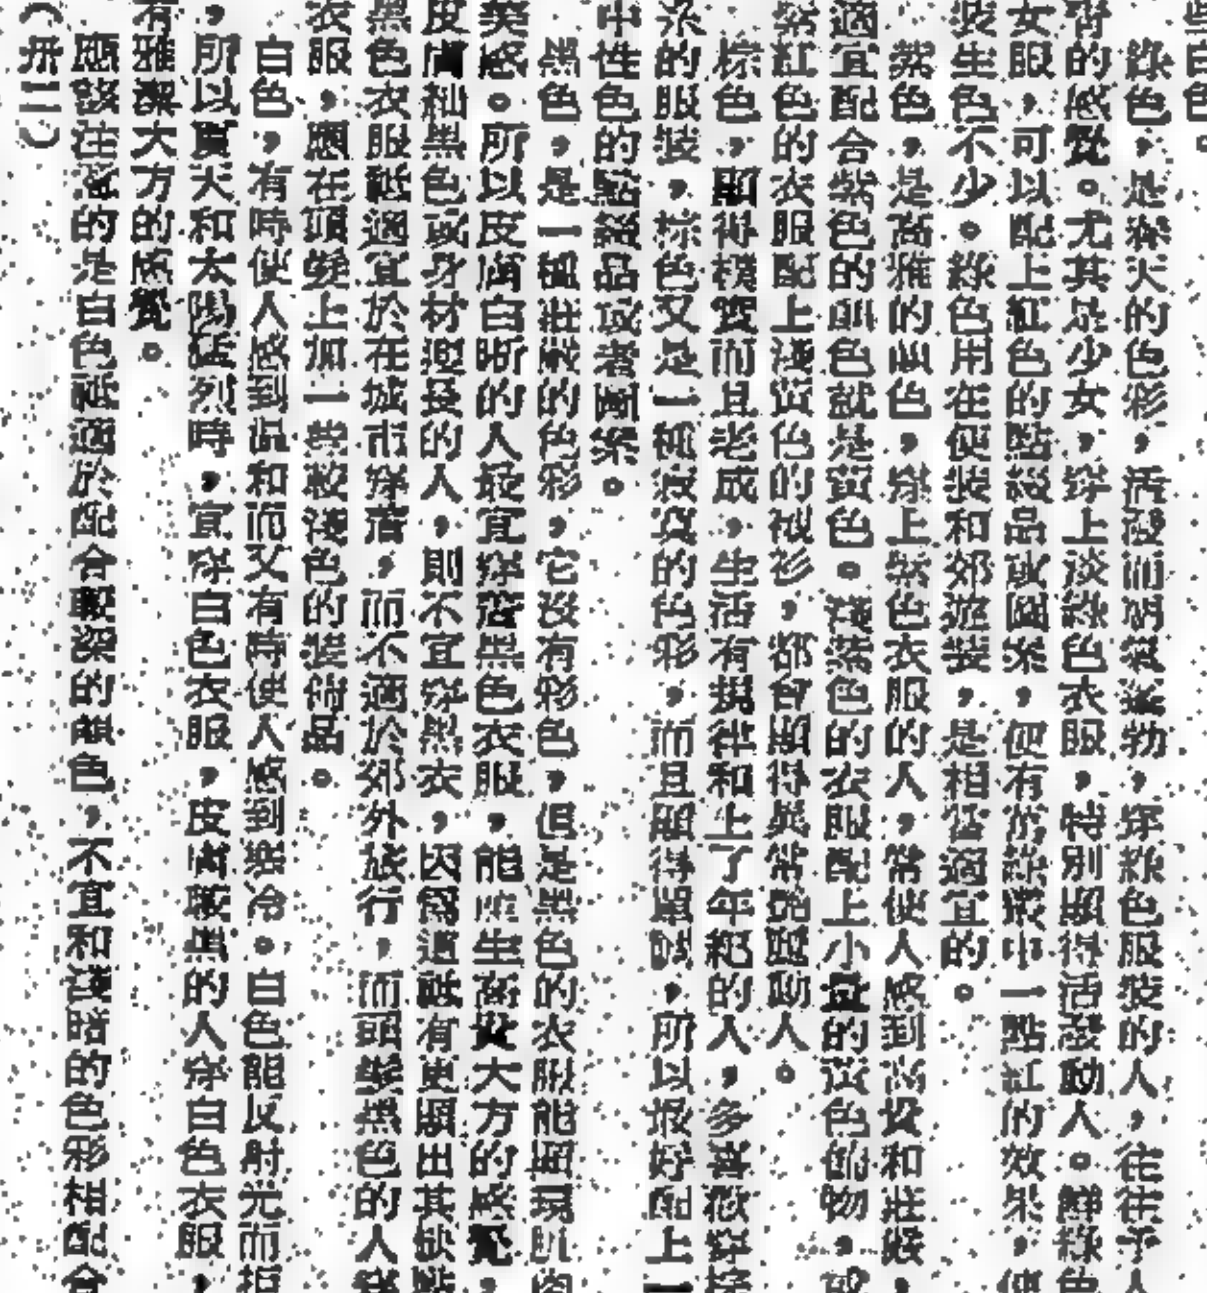 些白色。
綠色，是春天的色彩，活潑而朝氣蓬勃，穿綠色服裝的人，往往予人
青的感覺。尤其是少女，穿上淡綠色衣服，特別顯得活潑動人。鮮綠色
女服，可以配上紅色的點綴品或圖案，便有萬綠叢中一點紅的效果，使
裝生色不少。綠色用在便裝和郊遊裝，是相當適宜的。
紫色，是高雅的顏色，穿上紫色衣服的人，常使人感到高貴和莊嚴，
適宜配合紫色的顏色就是黃色。淺紫色的衣服配上小量的黃色飾物，或
紫紅色的衣服配上淺黃色的襯衫，都會顯得異常嬌艷動人。
棕色，顯得樸實而且老成，生活有規律和上了年紀的人，多喜歡穿棕
系的服裝，棕色又是一種寂寞的色彩，而且顯得單調，所以最好配上一
中性色的點綴品或者圖案。
黑色，是一種莊嚴的色彩，它沒有彩色，但是黑色的衣服能顯現肌膚
美感。所以皮膚白晰的人最宜穿著黑色衣服，能產生高貴大方的感覺，
皮膚黝黑色或身材過長的人，則不宜穿黑衣，因為這祇有更顯出其缺點
黑色衣服祇適宜於在城市穿着，而不適於郊外旅行，而頭髮黑色的人穿
衣服，應在頭髮上加一些較淺色的裝飾品。
白色，有時使人感到温和而又有時使人感到寒冷。白色能反射光而拒
，所以夏天和太陽猛烈時，宜穿白色衣服，皮膚較黑的人穿白色衣服，
有雅潔大方的感覺。
應該注意的是白色祇適於配合較深的顏色，不宜和淺暗的色彩相配合
（卅二）